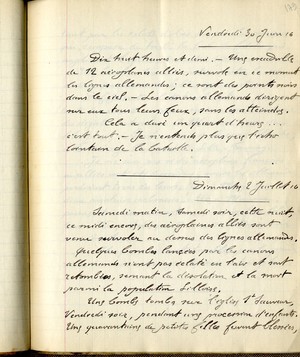 Vendredi 30 Juin 16
Dix huit heures et demi. – Une escadrille
de 12 aéroplanes alliés, survole en ce moment
les lignes allemandes ; ce sont des points noirs
dans le ciel. – Les canons allemands dirigent
sur eux tous leurs feux, sans les atteindre.
Cela a duré un quart d'heure ...
c'est tout. – Je n'entends plus que l'echo
lointain de la bataille.
Dimanche 2 Juillet 16
Samedi matin, Samedi soir, cette nuit,
ce midi encore, des aéroplanes alliés sont
venus survoler au dessus des lignes allemandes.
Quelques bombes lancées par les canons
allemands n'ont pas éclaté en l'air et sont
retombées, semant la désolation et la mort
parmi la population Lilloise.
Une bombe tomba sur l'église St Sauveur,
Vendredi soir, pendant une procession d'enfants.
Une quarantaine de petites filles furent blessées,